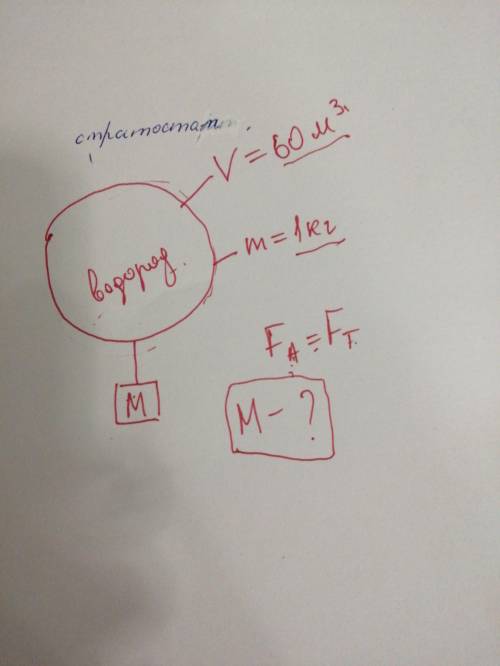 стратостат.
V = 60 м³.
m = 1 кг
водород.
F_A = F_T.
M
M - ?